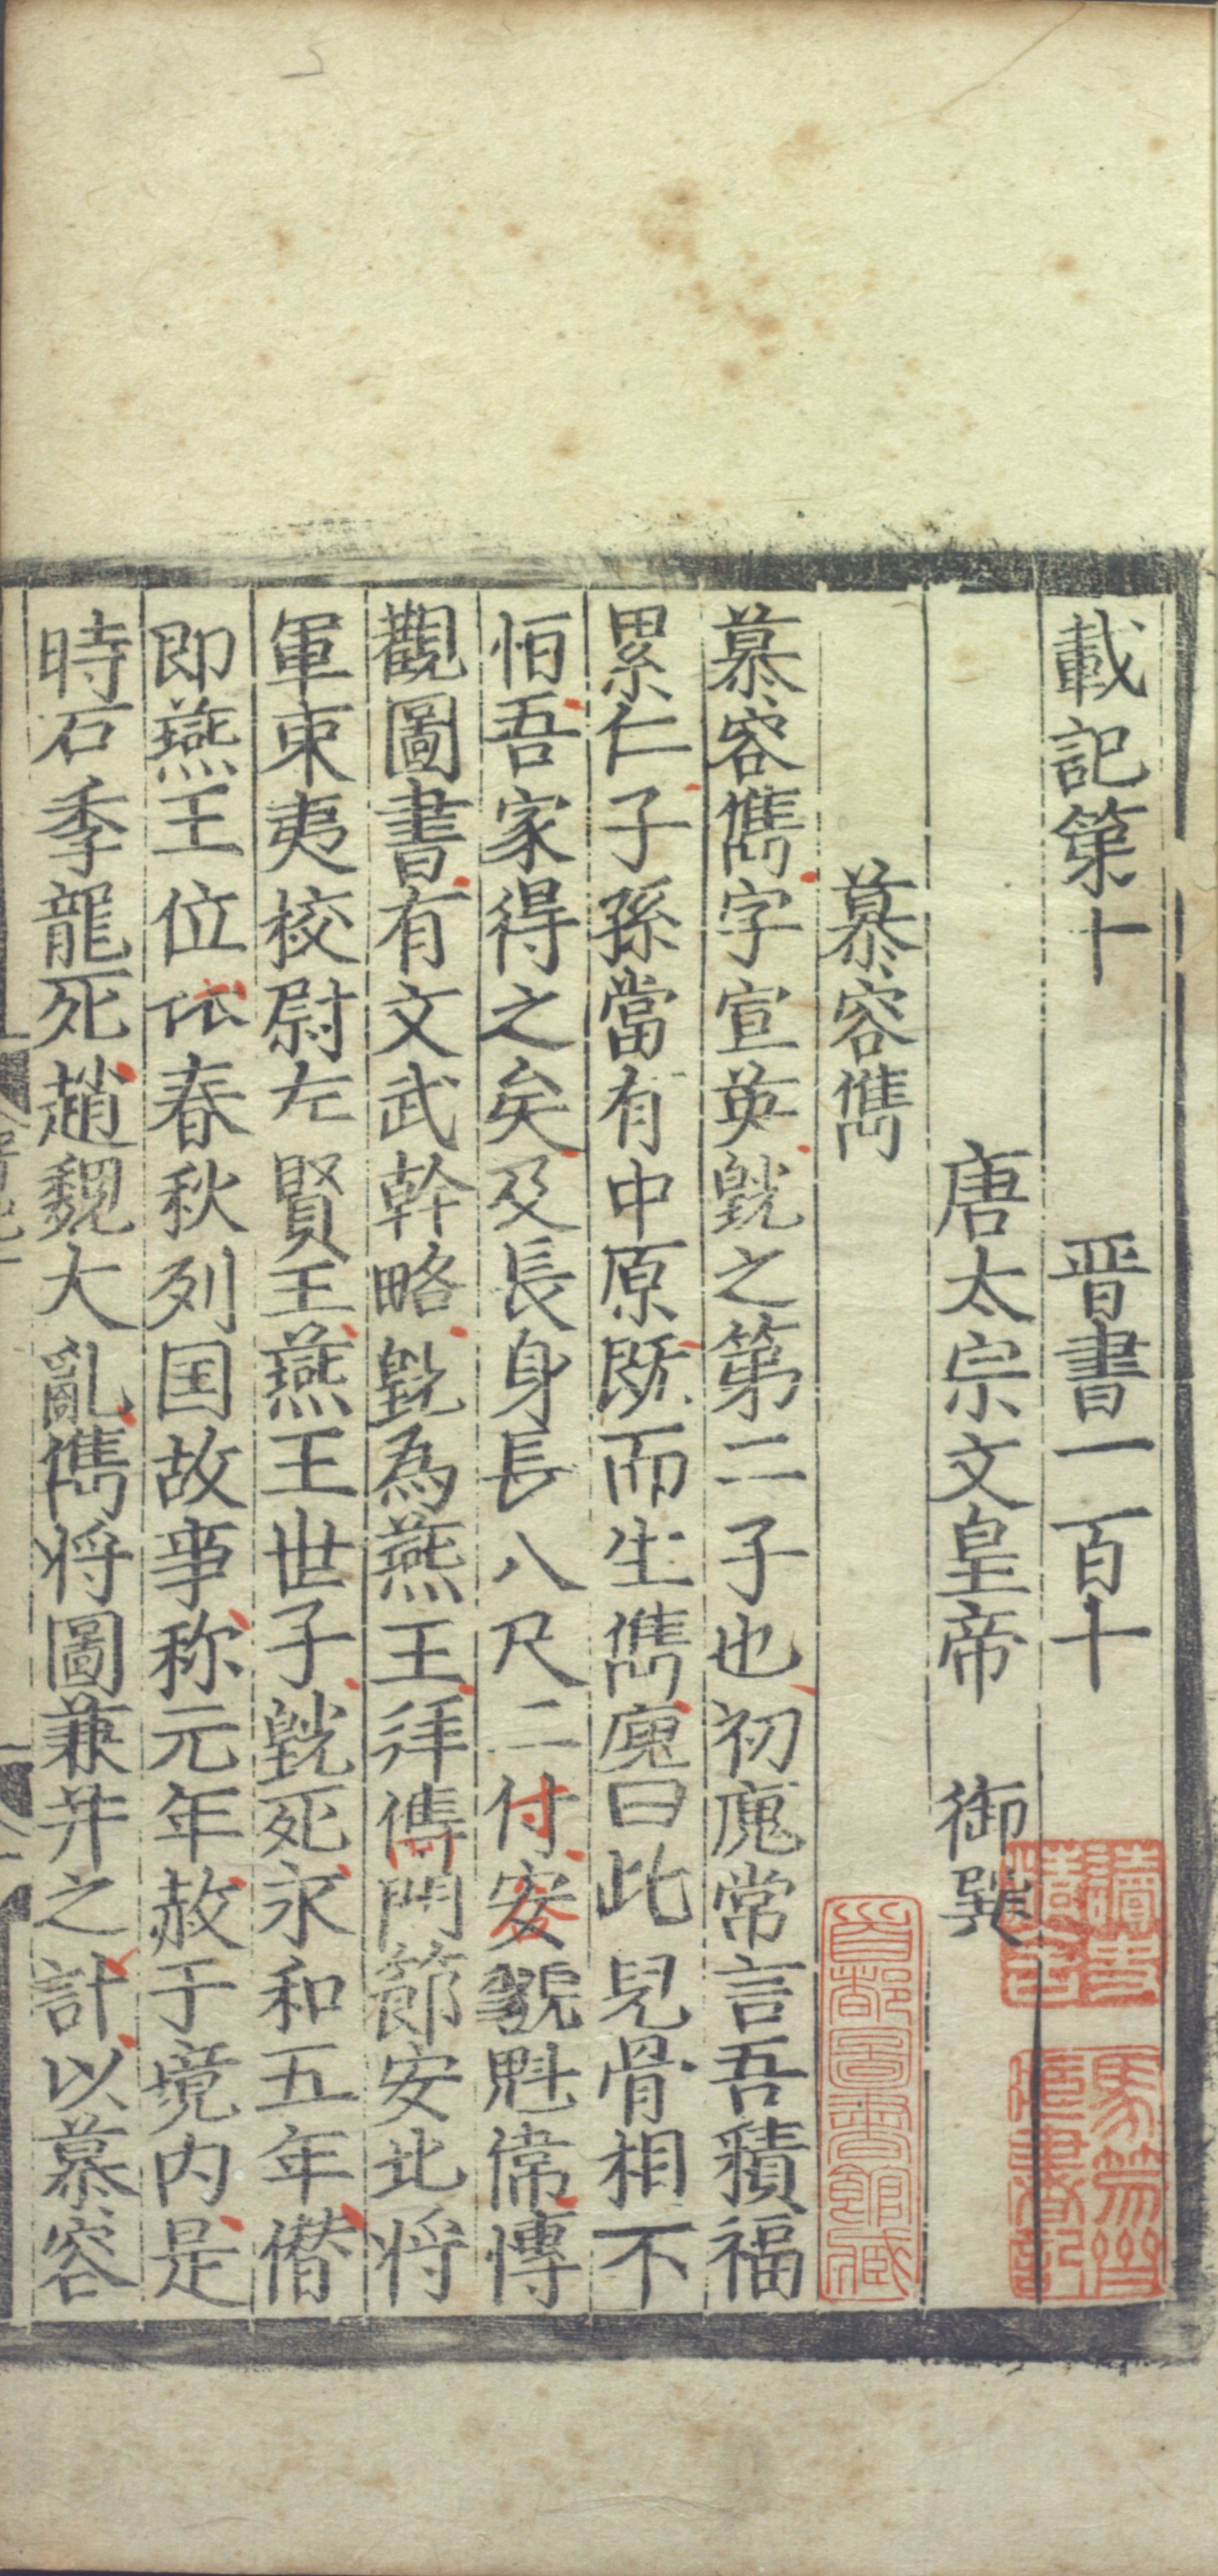 載記第十 晉書一百十
唐太宗文皇帝 御撰
慕容儁
慕容儁字宣英皝之第二子也初廆常言吾積福
累仁子孫當有中原既而生儁廆曰此兒骨相不
恒吾家得之矣及長身長八尺二付安貌魁偉博
觀圖書有文武幹略皝為燕王拜儁門節安北将
軍東夷校尉左賢王燕王世子皝死永和五年僣
即燕王位依春秋列国故事称元年赦于境内是
時石季龍死趙魏大亂儁将圖兼并之計以慕容
首都圖書館藏